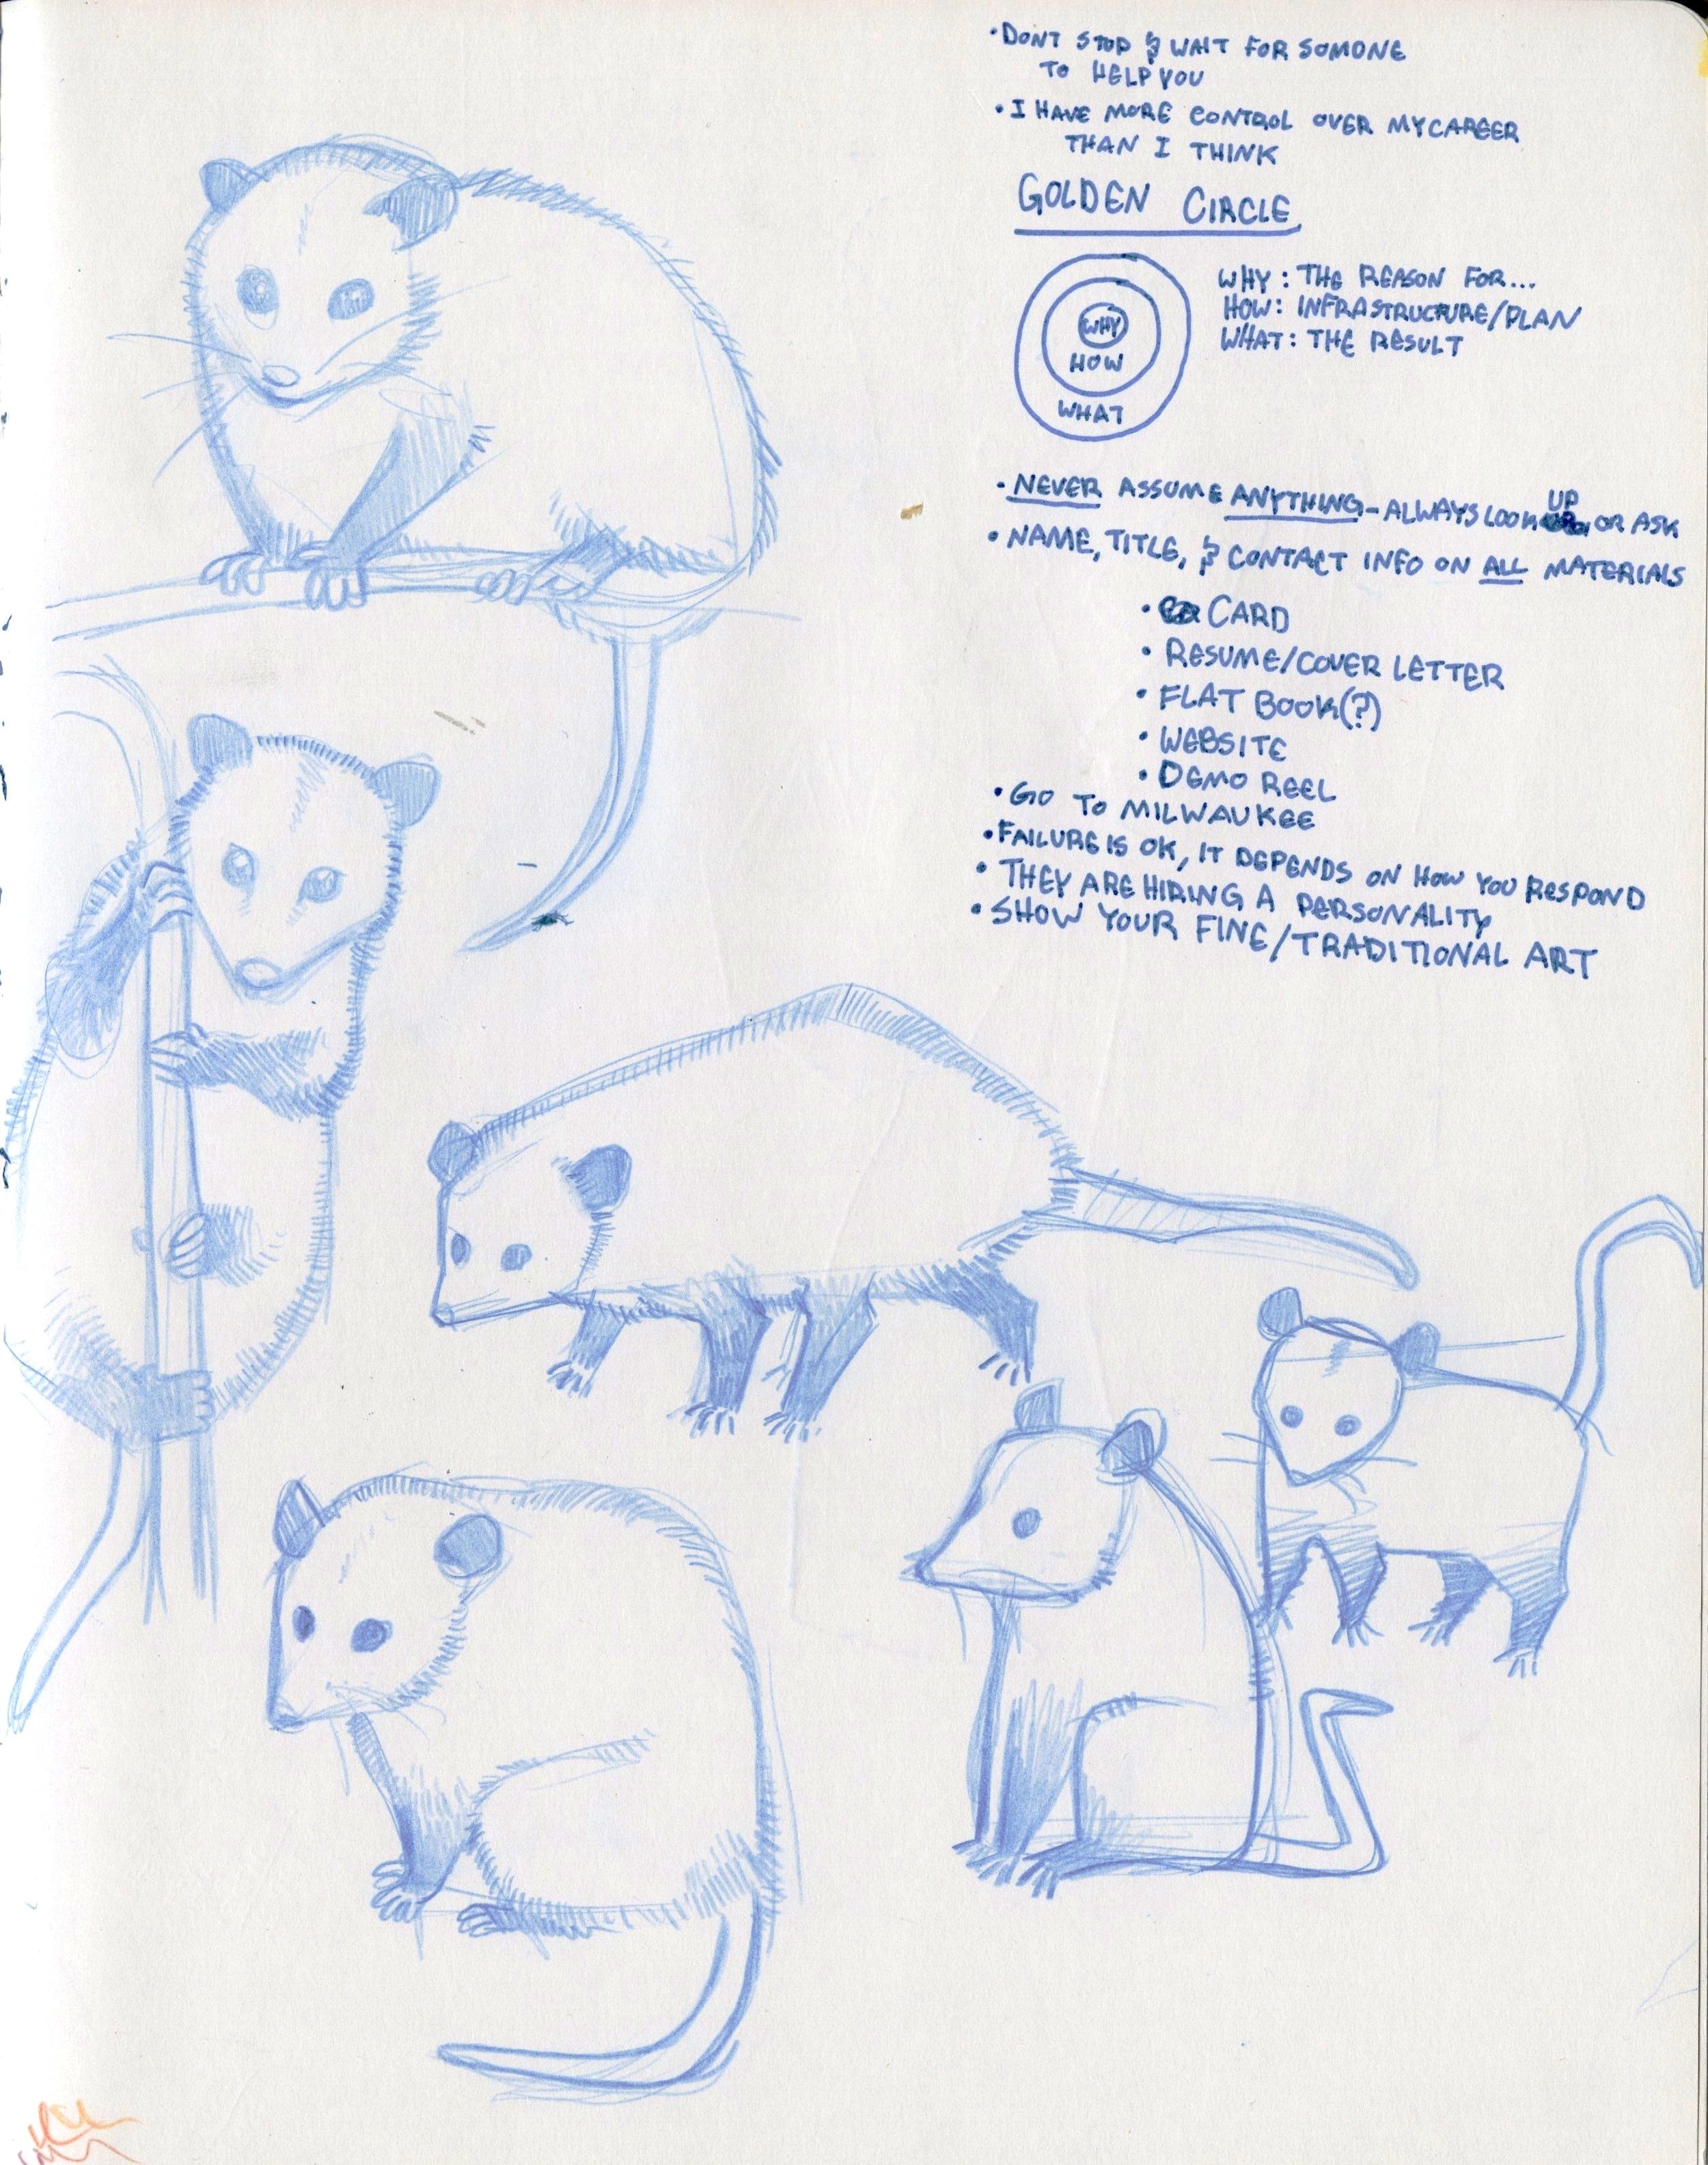 • DONT STOP & WAIT FOR SOMONE
TO HELP YOU
• I HAVE MORE CONTROL OVER MY CAREER
THAN I THINK
GOLDEN CIRCLE
WHY
HOW
WHAT
WHY: THE REASON FOR...
HOW: INFRASTRUCTURE/PLAN
WHAT: THE RESULT
• NEVER ASSUME ANYTHING - ALWAYS LOOK UP OR ASK
• NAME, TITLE, & CONTACT INFO ON ALL MATERIALS
• CARD
• RESUME/COVER LETTER
• FLAT BOOK(?)
• WEBSITE
• DEMO REEL
• GO TO MILWAUKEE
• FAILURE IS OK, IT DEPENDS ON HOW YOU RESPOND
• THEY ARE HIRING A PERSONALITY
• SHOW YOUR FINE/TRADITIONAL ART